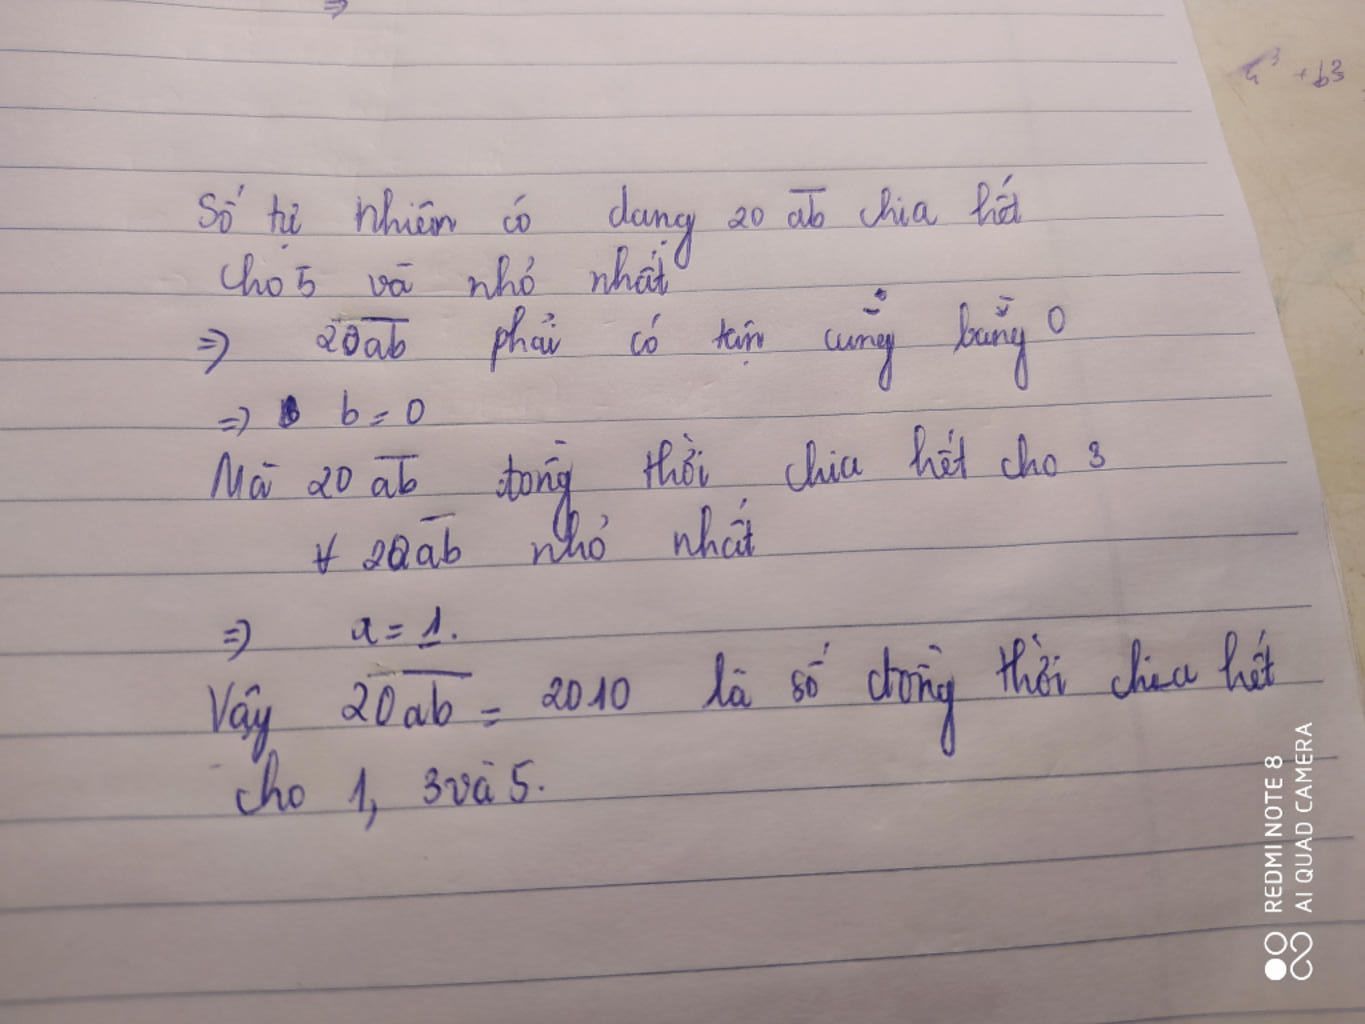 ⇒
a³ + b³
Số tự nhiên có dạng 20 ab chia hết
cho 5 và nhỏ nhất
⇒ 20ab phải có tận cùng bằng 0
⇒ b = 0
Mà 20 ab đồng thời chia hết cho 3
+ 20ab nhỏ nhất
⇒ a = 1.
Vậy 20ab = 2010 là số đồng thời chia hết
cho 1, 3 và 5.
REDMI NOTE 8
AI QUAD CAMERA